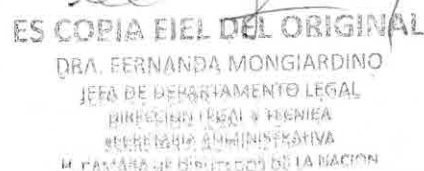 ES COPIA FIEL DEL ORIGINAL
DRA. FERNANDA MONGIARDINO
JEFA DE DEPARTAMENTO LEGAL
DIRECCION LEGAL Y TECNICA
SECRETARIA ADMINISTRATIVA
H. CAMARA DE DIPUTADOS DE LA NACION